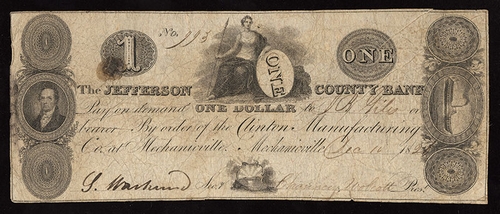 No. 993
1 ONE ONE
The JEFFERSON COUNTY BANK
Pay on demand ONE DOLLAR to J.B. or
bearer By order of the Clinton Manufacturing
Co. at Mechanicville. Mechanicville 18
Secr. Pres.